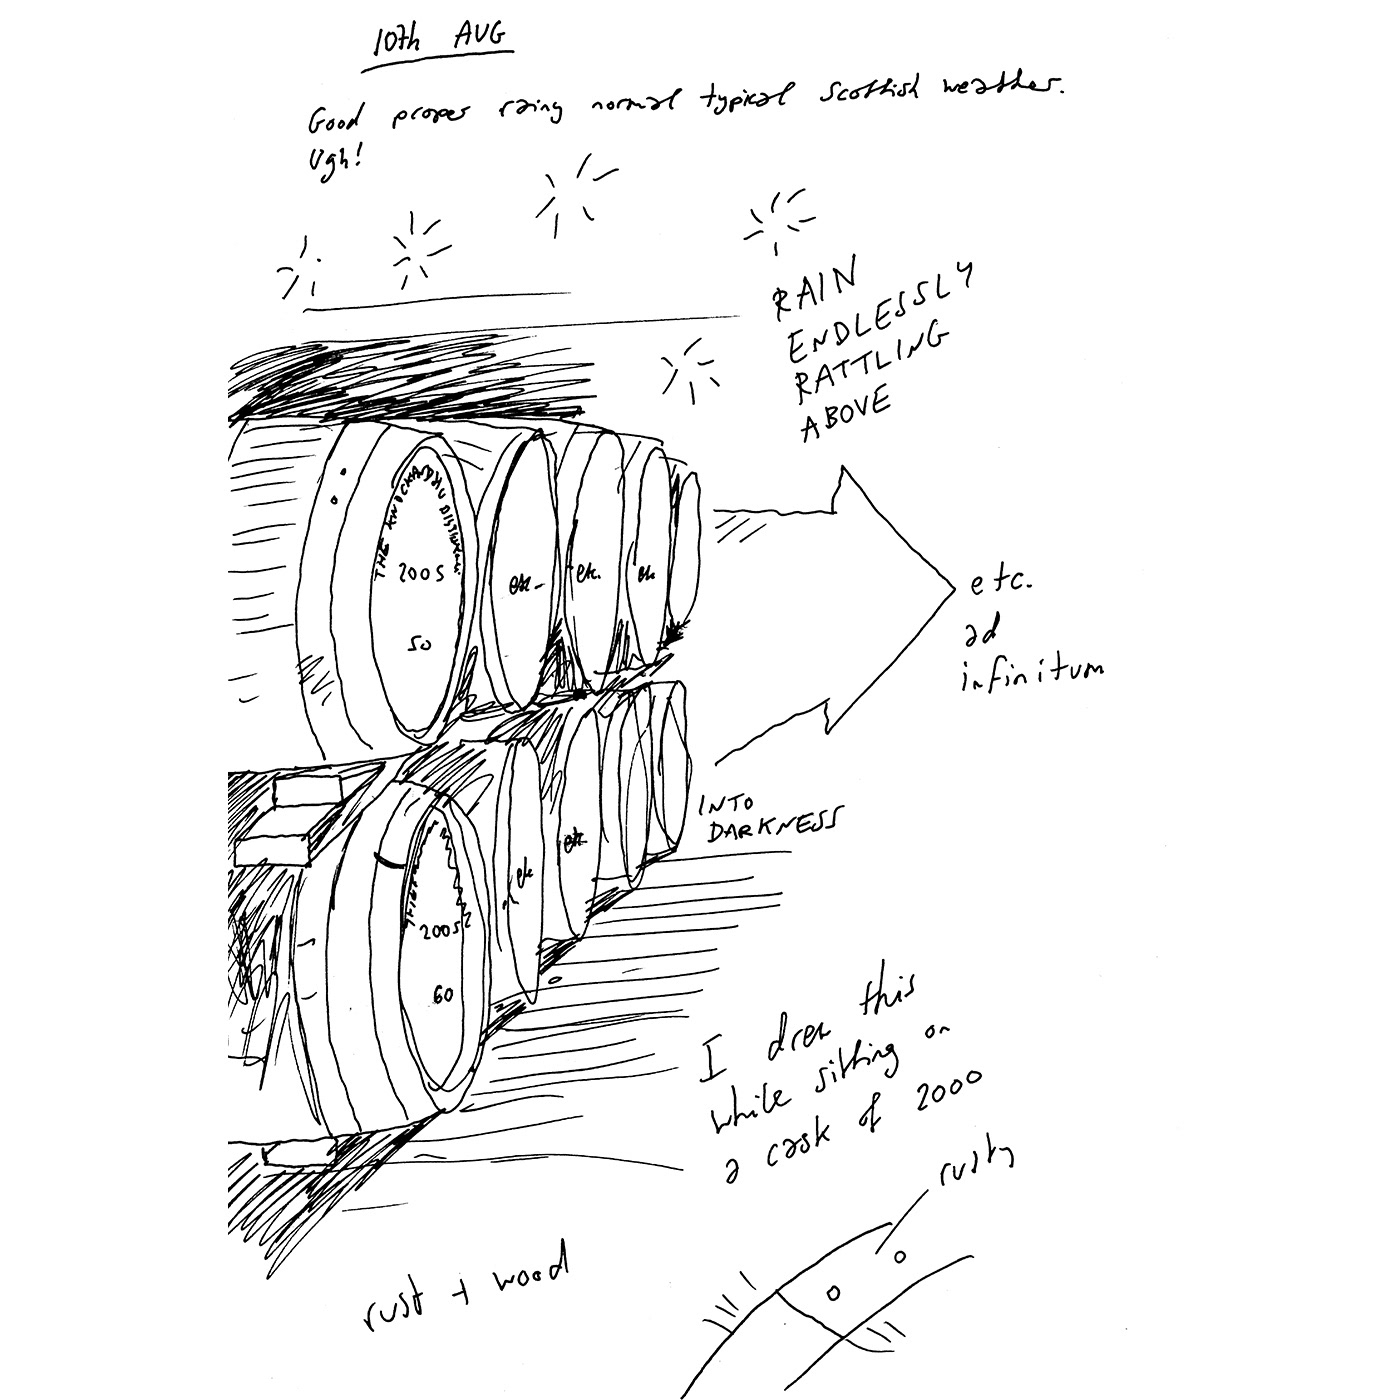 10th AUG
Good proper rainy normal typical Scottish weather.
Ugh!
RAIN
ENDLESSLY
RATTLING
ABOVE
THE KNOCKANDHU DISTILLERY
2005
50
etc.
etc.
etc
etc.
ad
infinitum
INTO
DARKNESS
etc
etc
2005
60
I drew this
while sitting on
a cask of 2000
rusty
rust + wood